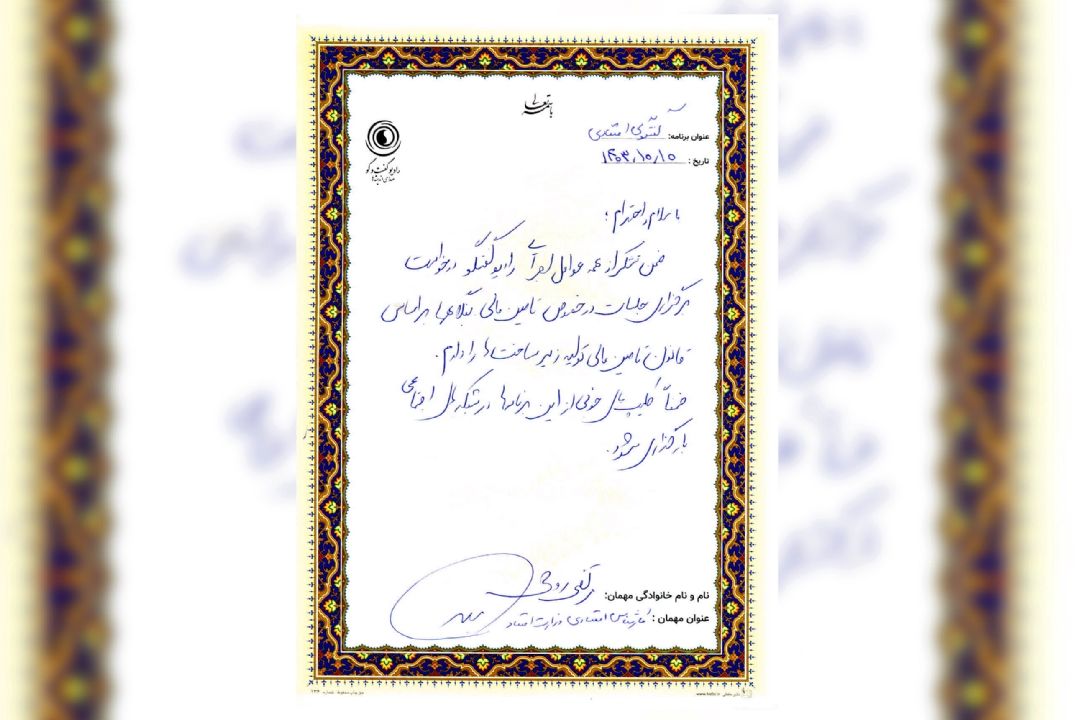 باسمه تعالی
عنوان برنامه: گفتگوی اقتصادی
تاریخ: ۱۴۰۳/۱۰/۱۰
رادیو گفت و گو
با سلام و احترام؛
ضمن تشکر از همه عوامل رادیو گفتگو درخواست
برگزاری جلسات در خصوص تامین مالی بنگاهها براساس
قانون تامین مالی تولید زیرساخت ها را دارم.
ضمناً کلیپ های خوبی از این برنامه‌ها در شبکه های اجتماعی
بارگذاری شود.
نام و نام خانوادگی مهمان: مرتضی
عنوان مهمان: کارشناس اقتصادی وزارت اقتصاد